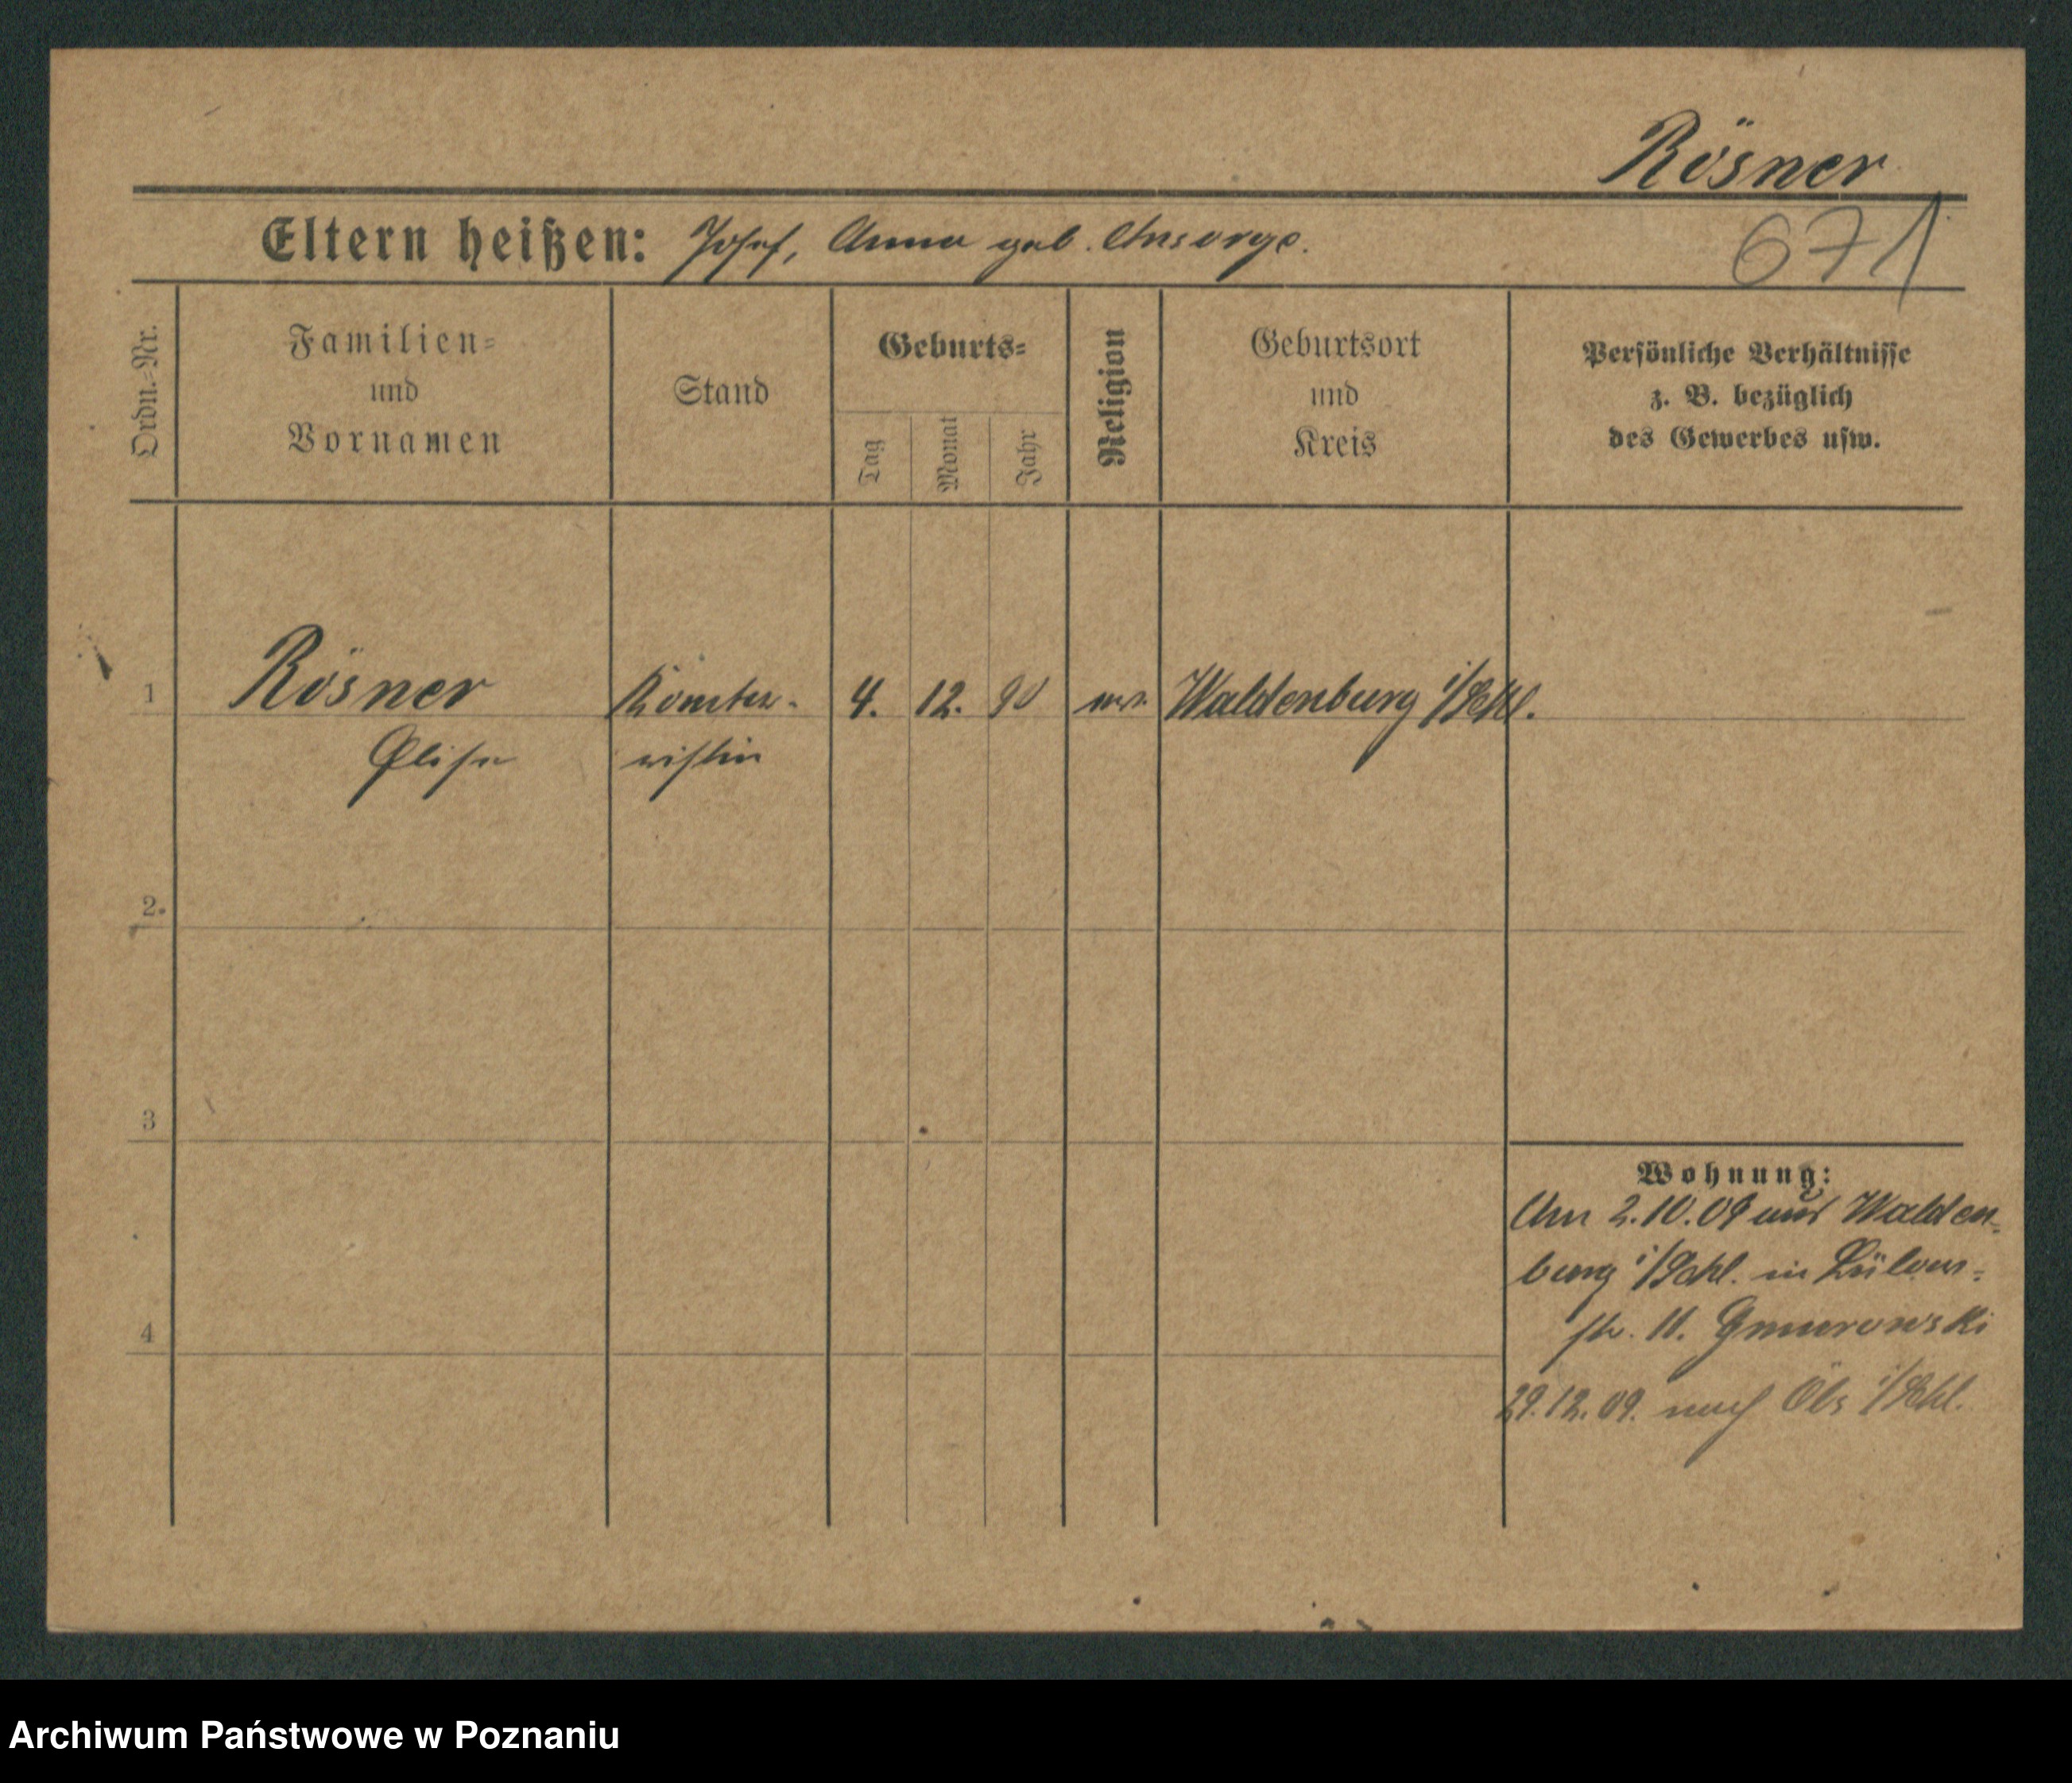 Rösner
Eltern heißen: Josef, Anna geb. Ansorge.
671
Ordn.=Nr.
Familien=
und
Vornamen
Stand
Geburts=
Tag
Monat
Jahr
Religion
Geburtsort
und
Kreis
Persönliche Verhältnisse
z. B. bezüglich
des Gewerbes usw.
1 Rösner 4. 12. 90 Waldenburg i/Schl.
Elise ristin
2.
3
4
Wohnung:
Am 2.10.09 aus Walden=
burg i/Schl. in
str. 11. Gmurowski
29.12.09. nach Öls i/Schl.
Archiwum Państwowe w Poznaniu